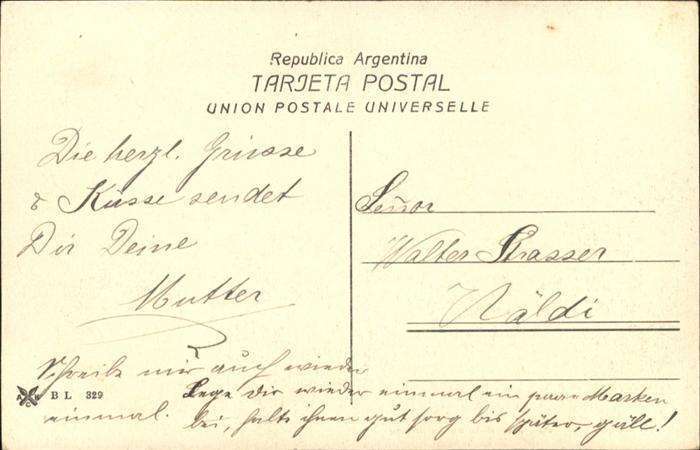 Republica Argentina
TARJETA POSTAL
UNION POSTALE UNIVERSELLE
Die herzl. Grüsse
& Küsse sendet
Dir Deine
Mutter
Señor
Walter Strasser
Näldi
Schreibe mir auch wieder
einmal.
Lege dir wieder einmal ein paar Marken
bei, halte ihnen gut sorg bis später, gäll!
B L 329